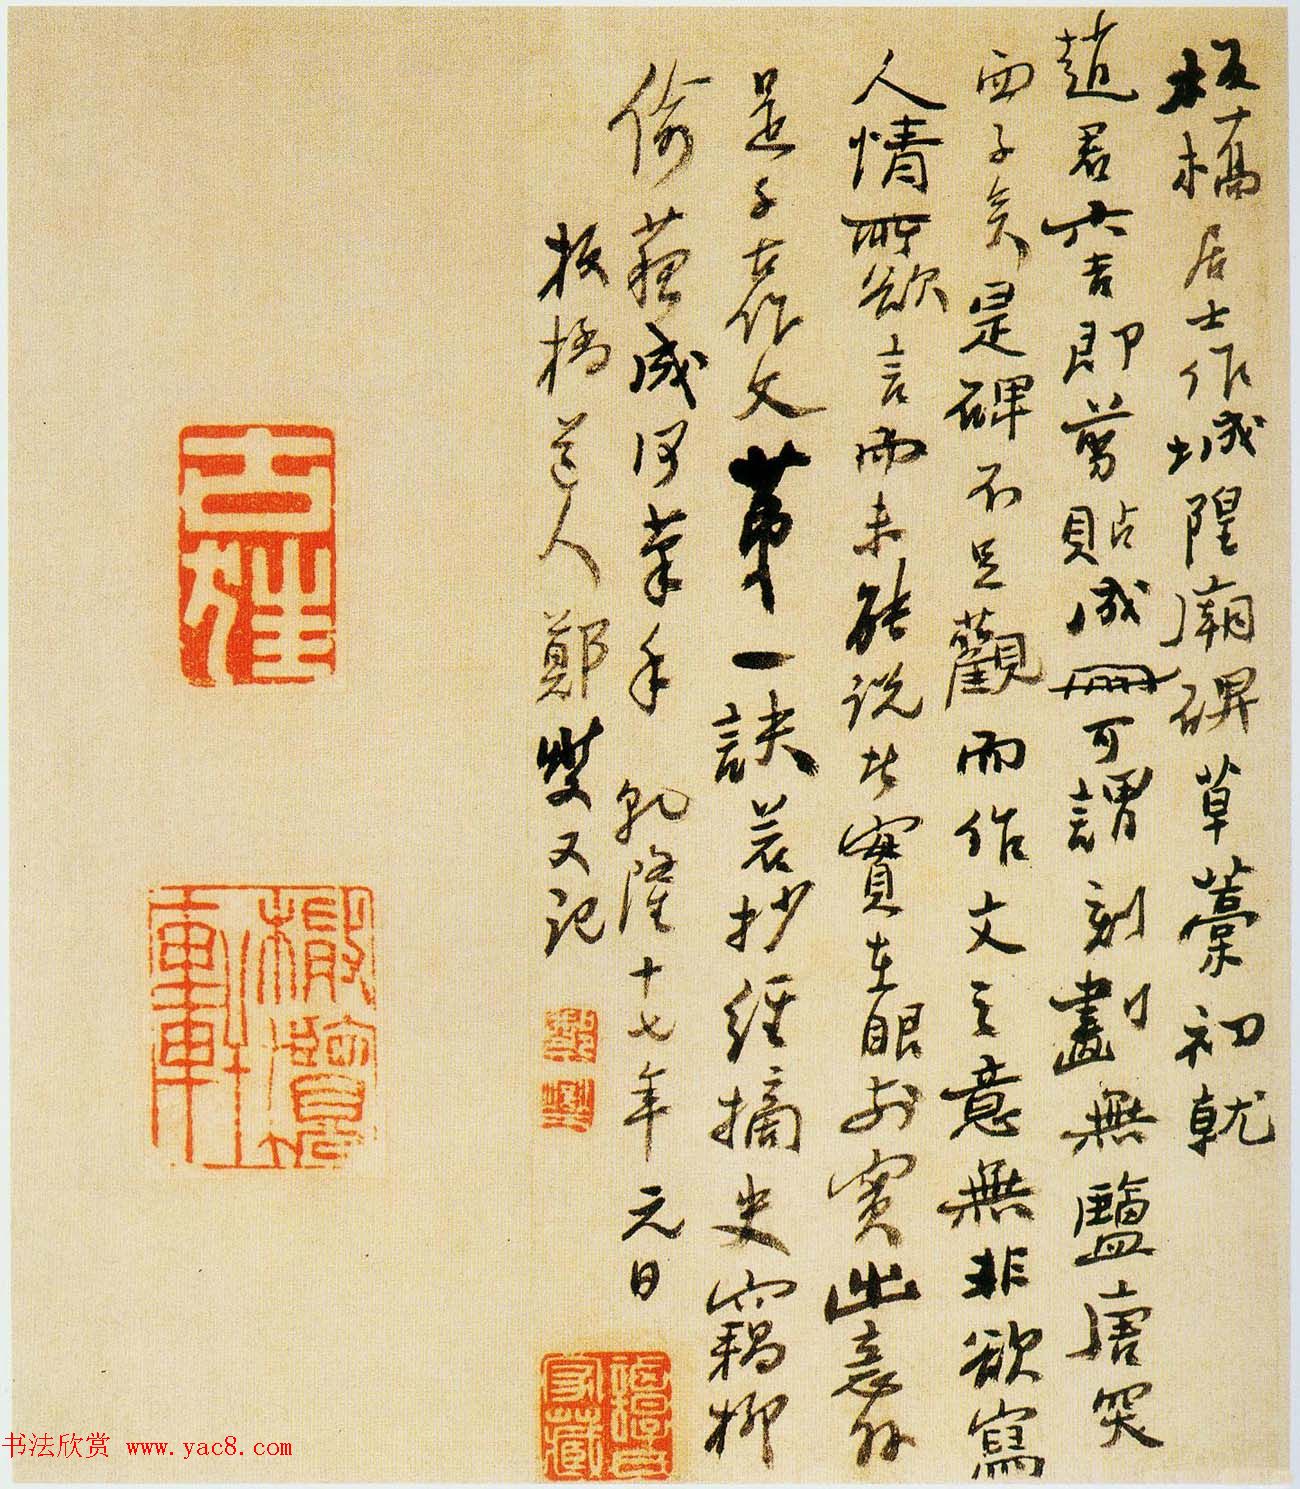 板橋居士作城隍廟碑草藁初就
趙君六吉即剪貼成冊可謂刻劃無鹽唐突
西子矣是碑不足觀而作文之意無非欲寫
人情所欲言而未能說者實在眼前實出意外
是千古作文第一訣若抄經摘史竊柳
偷蘇成何筆手乾隆十七年元日
板橋道人鄭燮又記
鄭燮
家藏
书法欣赏 www.yac8.com